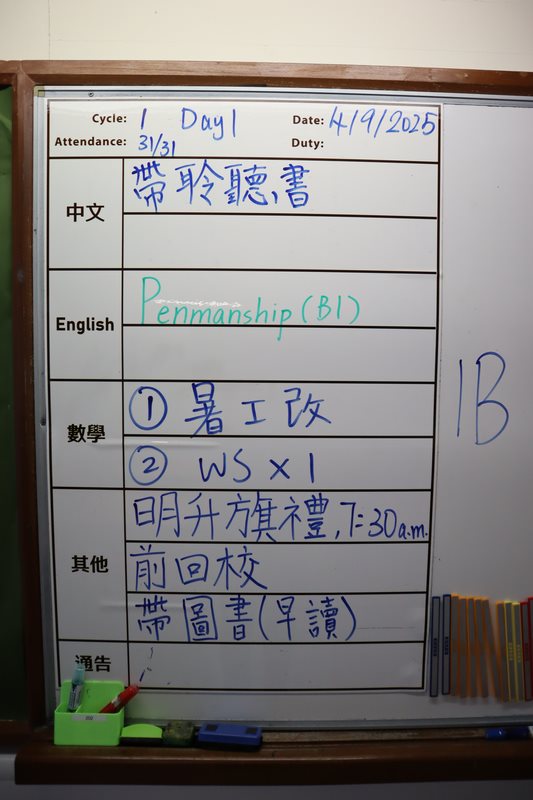 Cycle: 1 Day 1 Date: 4/9/2025
Attendance: 31/31 Duty:
中文 帶聆聽書
English Penmanship (B1)
數學 ① 暑工改
② WS x 1
其他 明升旗禮, 7:30a.m.
前回校
帶圖書(早讀)
通告
1B